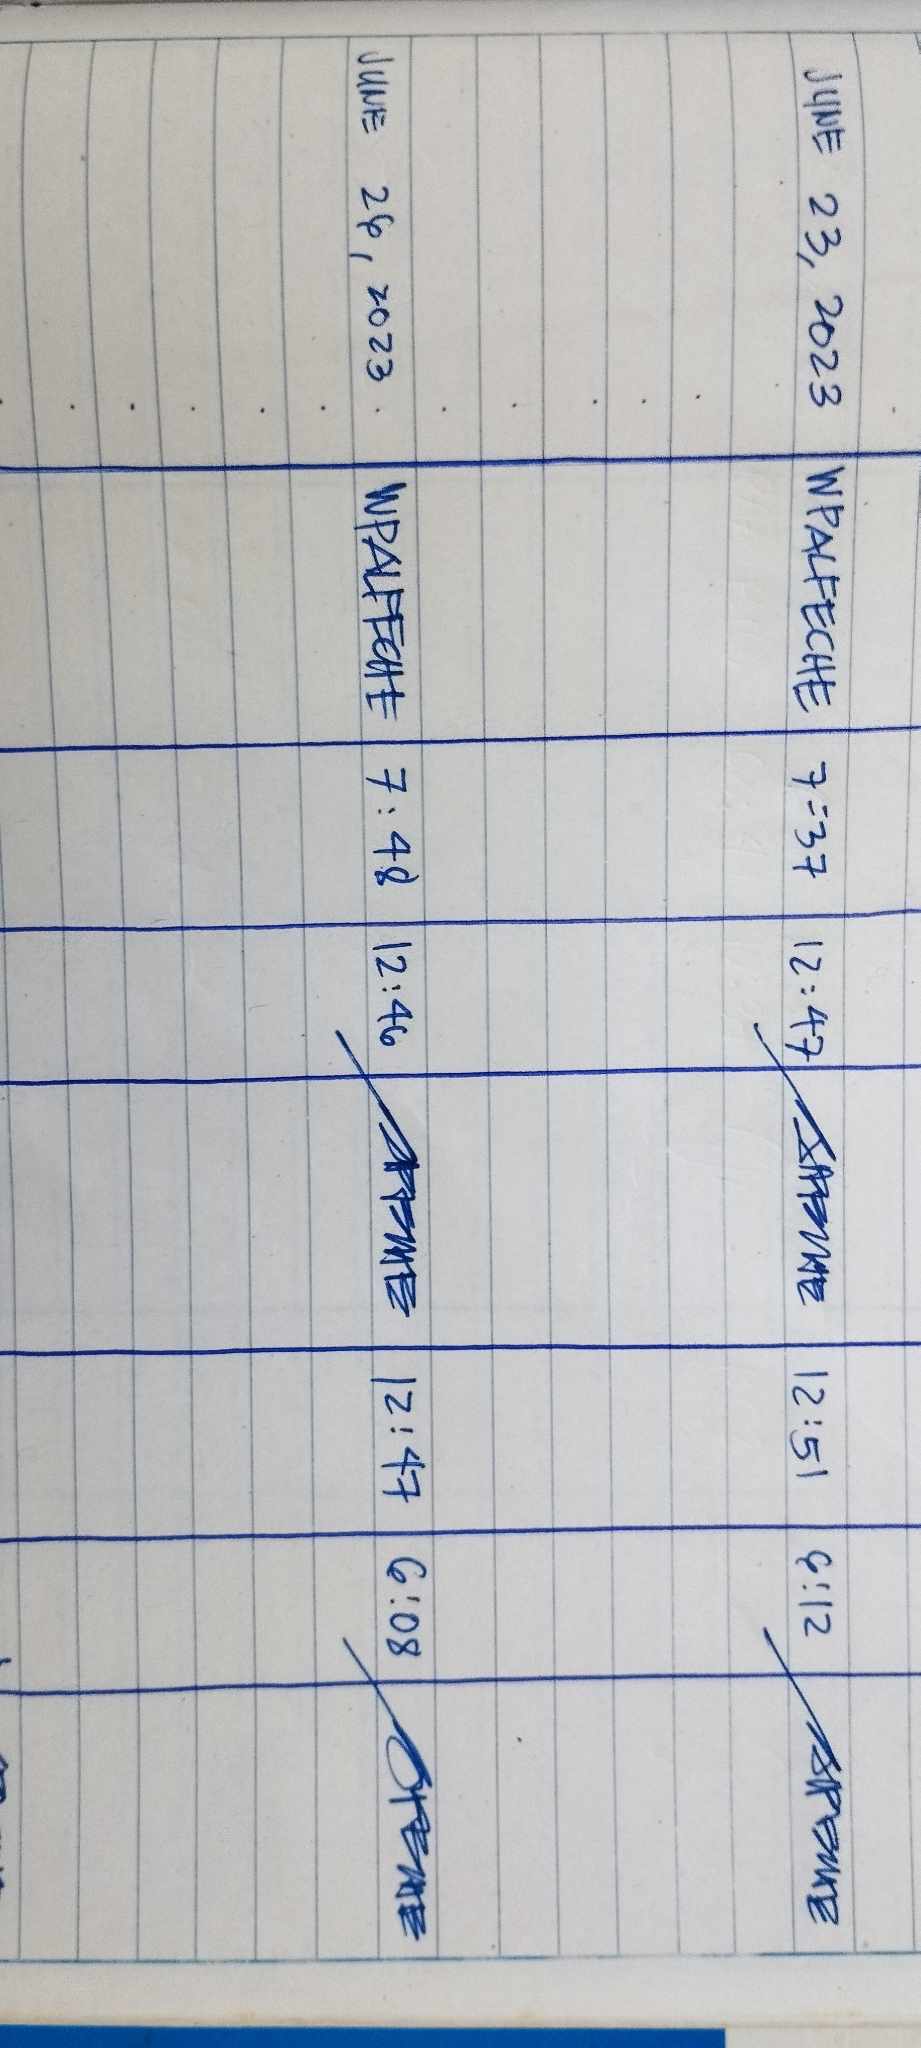 JUNE 23, 2023 WPALFECHE 7:37 12:47 12:51 6:12
JUNE 26, 2023 WPALFECHE 7:48 12:46 12:47 6:08